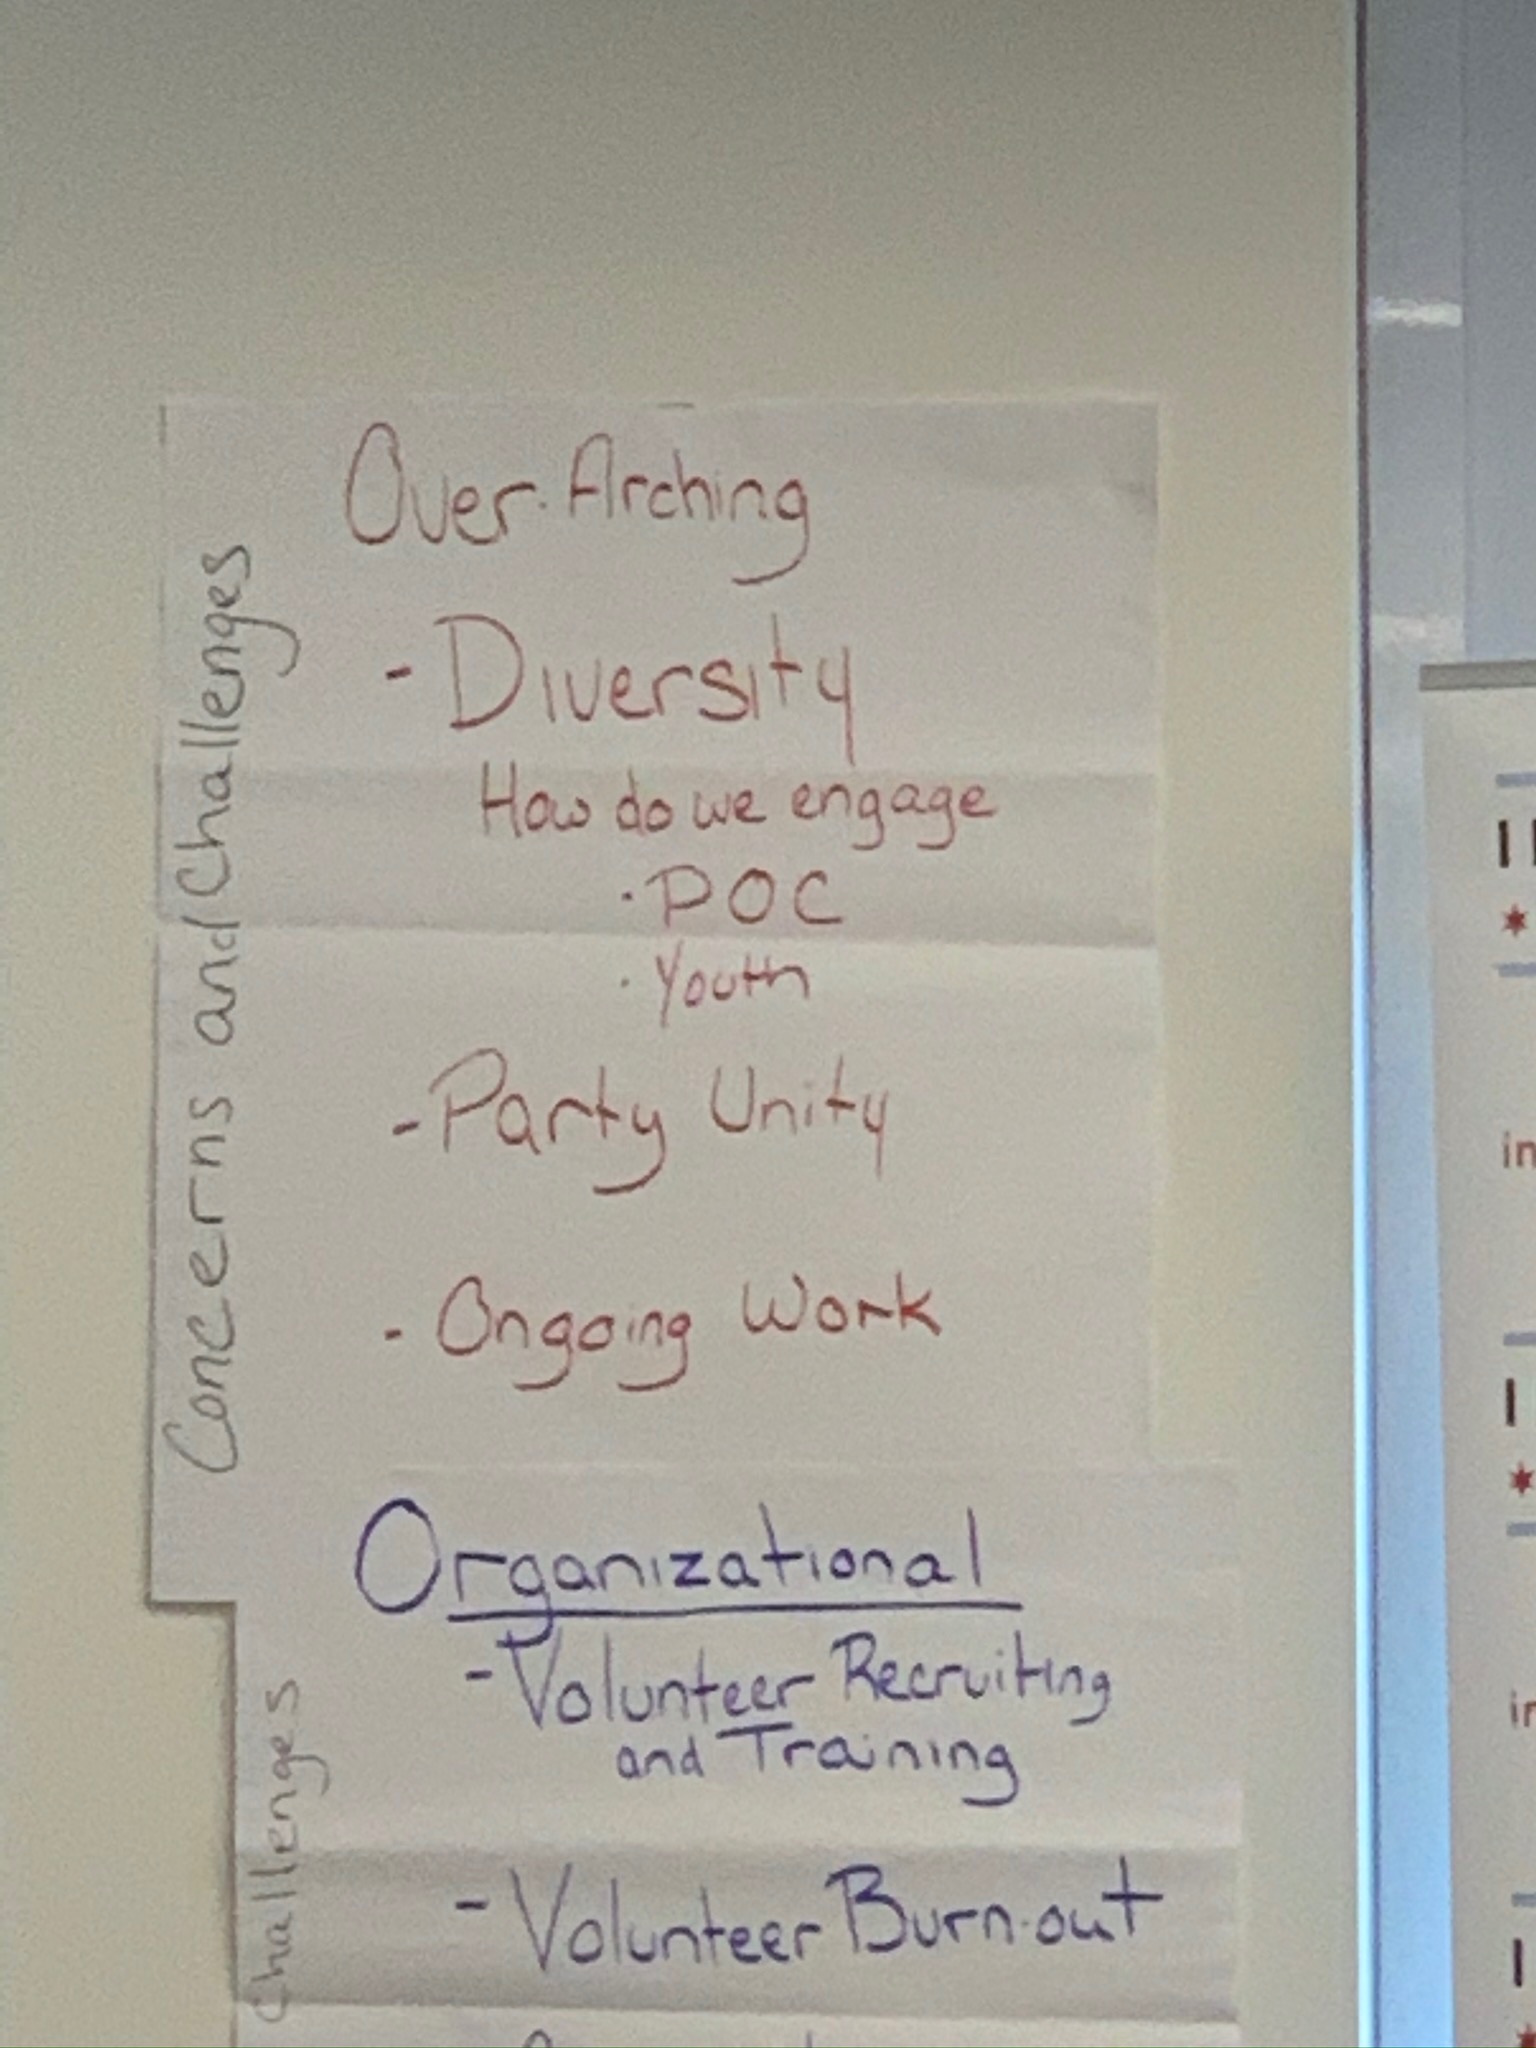 Concerns and Challenges
Over-Arching
- Diversity
How do we engage
· POC
· Youth
- Party Unity
- Ongoing Work
Challenges
Organizational
- Volunteer Recruiting
and Training
- Volunteer Burn-out